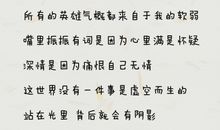 所有的英雄气概都来自于我的软弱
嘴里振振有词是因为心里满是怀疑
深情是因为痛恨自己无情
这世界没有一件事是虚空而生的
站在光里 背后就会有阴影